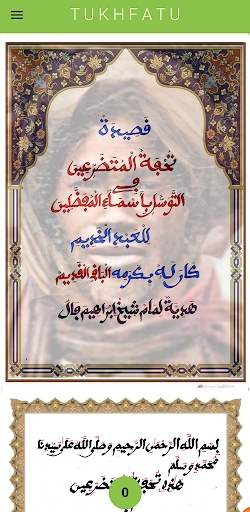 TUKHFATU
فصيدة
تحفة المتضرعين
في
التوسل باسماء المفضلين
للعبد الخديم
كان له بكرمه الباقي القديم
هدية لمام شيخ ابراهيم جال
بسم الله الرحمن الرحيم وصلى الله على سيدنا
محمد وسلم
هذه تحفة المتضرعين
0